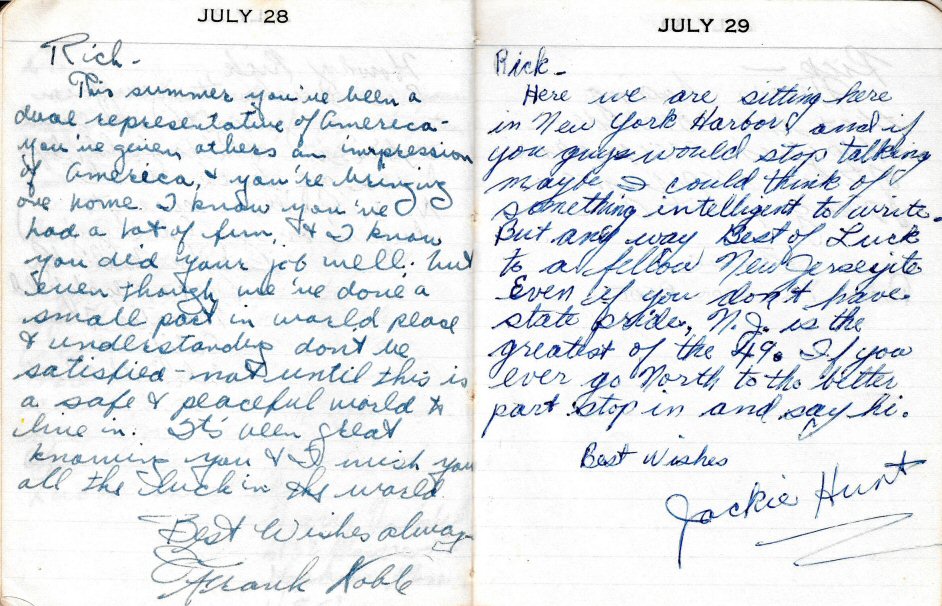 JULY 28
Rich-
This summer you've been a
dual representative of America-
you've given others an impression
of America, & you're bringing
one home. I know you've
had a lot of fun, & I know
you did your job well; but
even though we've done a
small part in world peace
& understanding don't be
satisfied - not until this is
a safe & peaceful world to
live in. It's been great
knowing you & I wish you
all the luck in the world
Best Wishes always
Frank Noble
JULY 29
Rick-
Here we are sitting here
in New York Harbor and if
you guys would stop talking
maybe I could think of
something intelligent to write.
But any way Best of Luck
to a fellow New Jerseyite
Even if you don't have
state pride, N.J. is the
greatest of the 49. If you
ever go North to the better
part stop in and say hi.
Best Wishes
Jackie Hunt